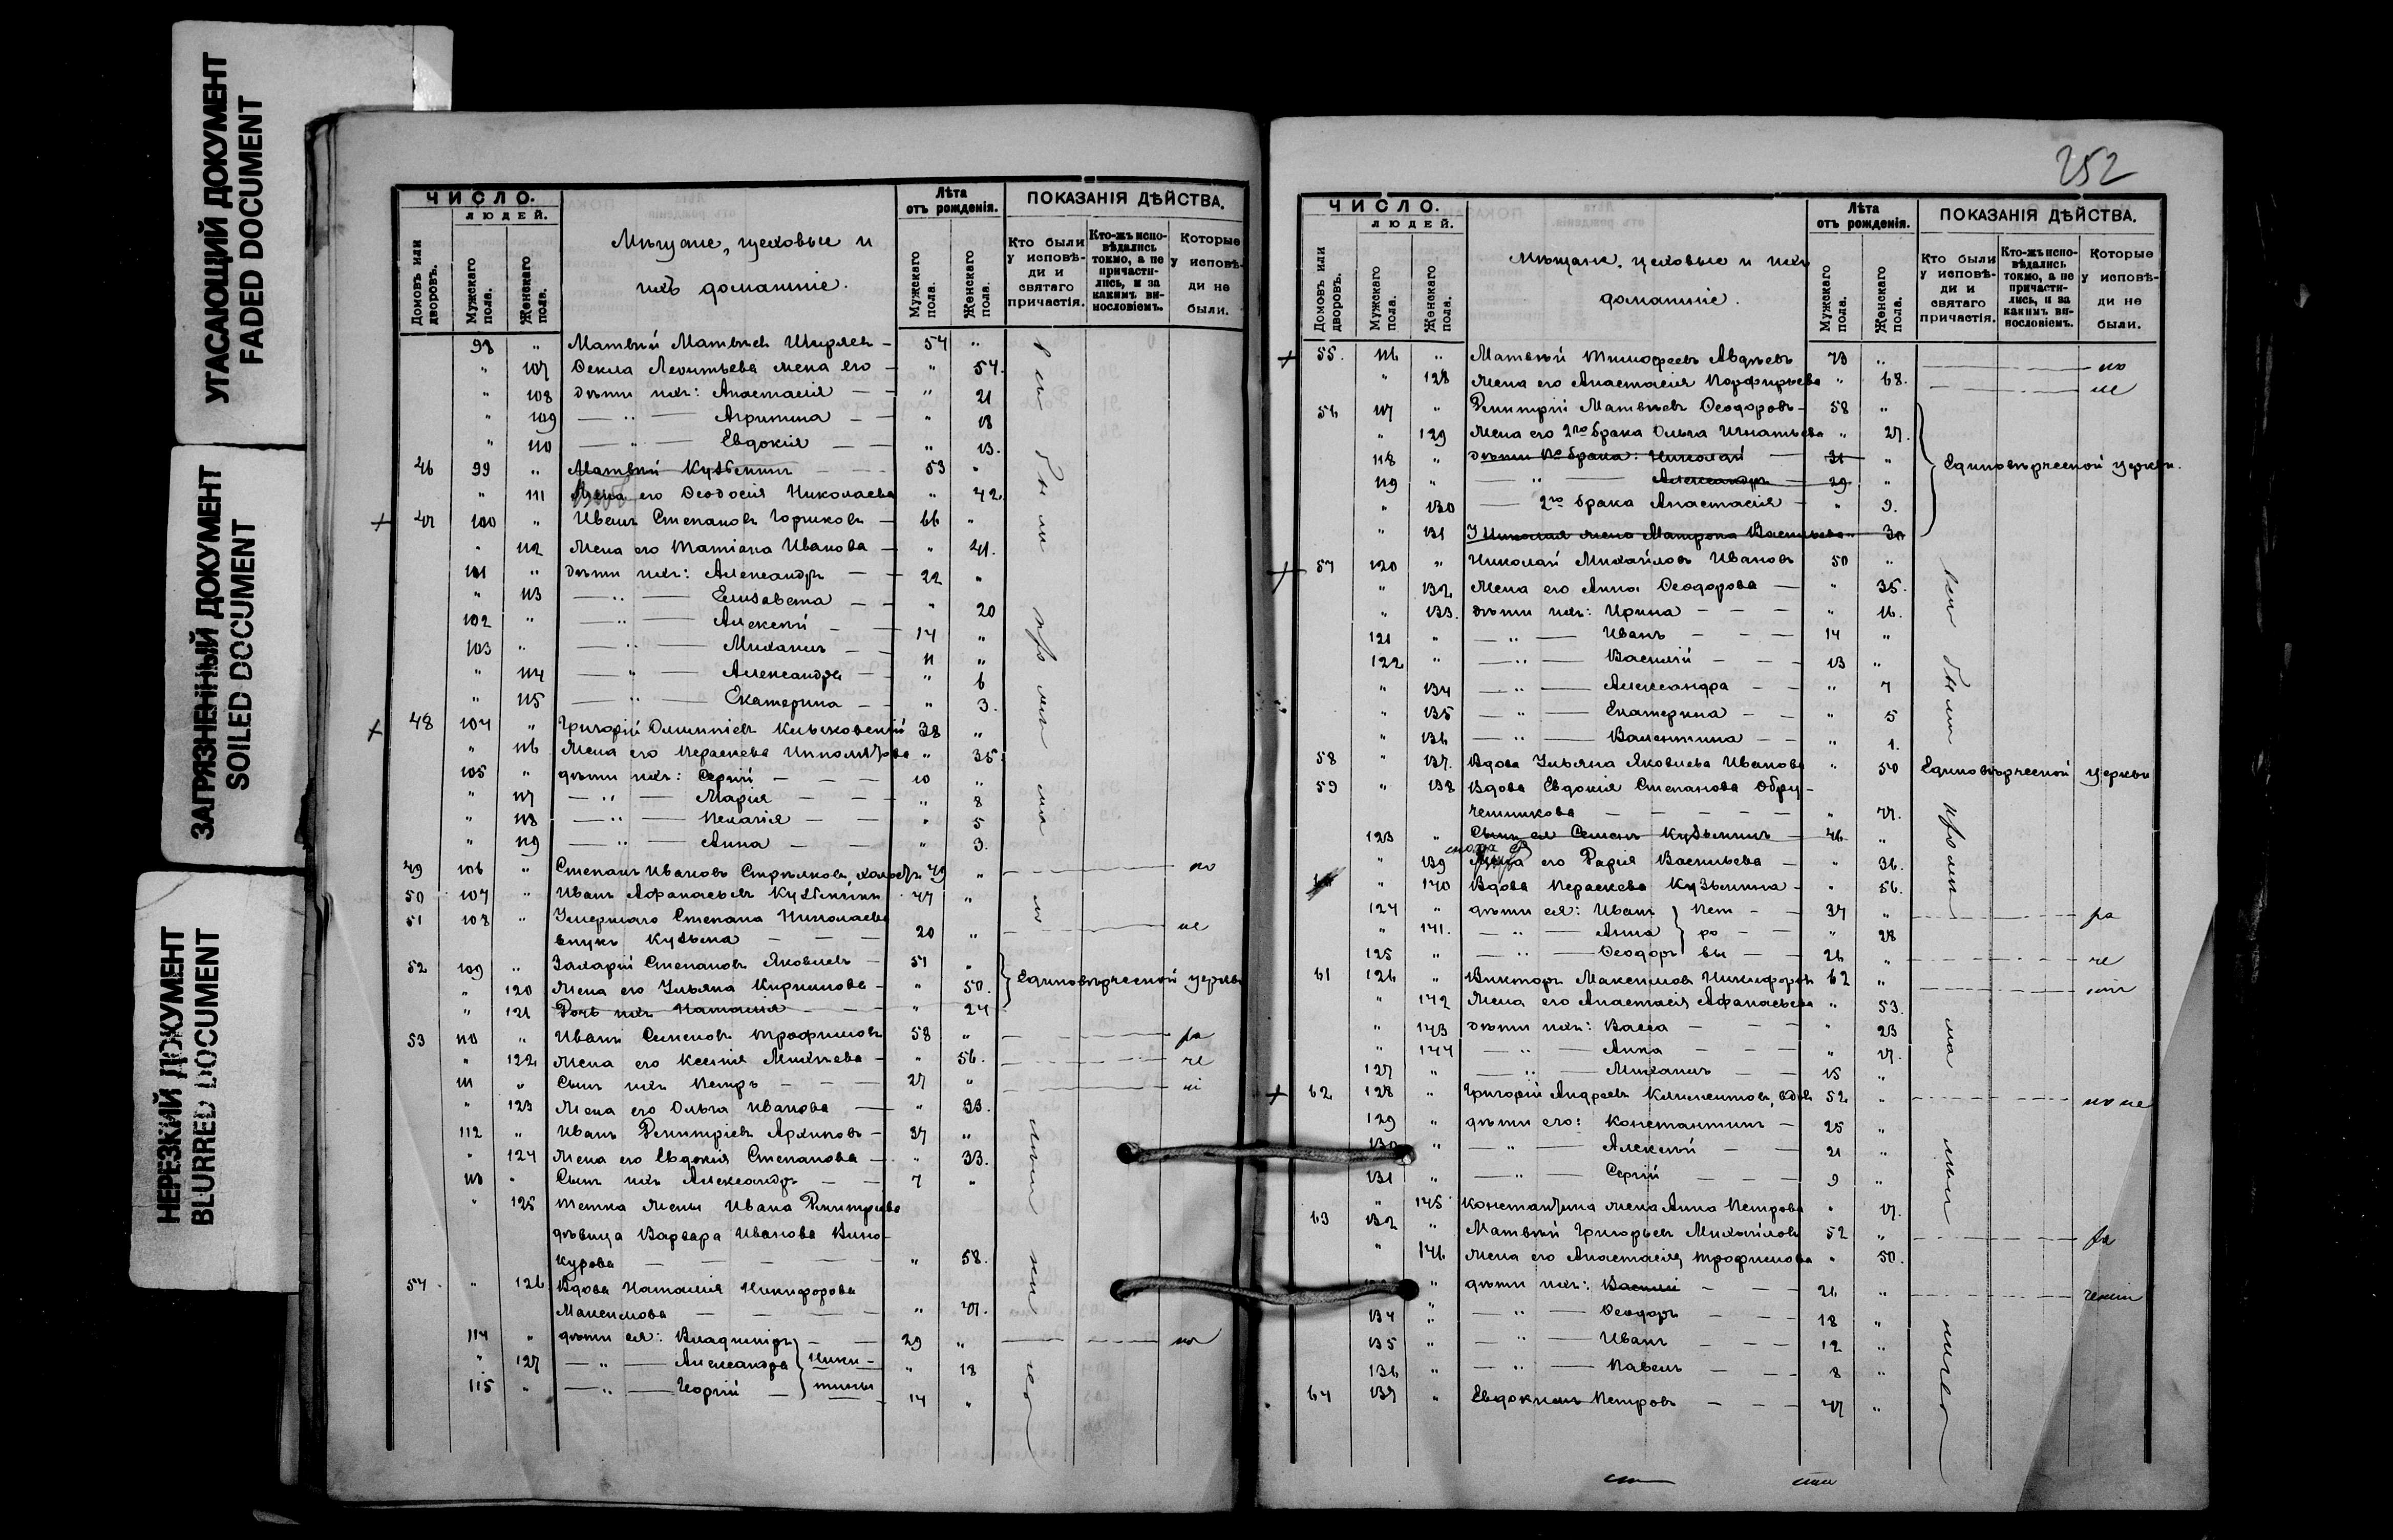 УГАСАЮЩИЙ ДОКУМЕНТ
FADED DOCUMENT
ЗАГРЯЗНЕННЫЙ ДОКУМЕНТ
SOILED DOCUMENT
НЕРЕЗКИЙ ДОКУМЕНТ
BLURRED DOCUMENT
ЧИСЛО.
ЛЮДЕЙ.
Домовъ или дворовъ.
Мужскаго пола.
Женскаго пола.
Мѣщане, цеховые и
ихъ домашніе.
Лѣта
отъ рожденія.
Мужскаго пола.
Женскаго пола.
ПОКАЗАНІЯ ДѢЙСТВА.
Кто были у исповѣди и святаго причастія.
Кто-жъ исповѣдались токмо, а не причастились, и за какимъ винословіемъ.
Которые у исповѣди не были.
98 " Матвѣй Матвѣев 54 "
" 107 Ѳекла Леонтьева жена его " 54.
" 108 дѣти ихъ: Анастасія " 21
" 109 — " — Агрипина " 18
" 110 — " — Евдокія " 13.
46 99 " Матвѣй Кузьминъ 53 "
" 111 его Ѳеодосія Николаева " 42.
+ 47 100 " Иванъ Степановъ Горшковъ 66 "
" 112 Жена его Татіана Иванова " 41.
101 " дѣти ихъ: Александръ 22 "
" 113 — " — Елизавета " 20
102 " — " — Алексѣй 14 "
103 " — " — Михаилъ 11 "
" 114 — " — Александра " 6
" 115 — " — Екатерина " 3.
+ 48 104 " Григорій Олимпіевъ 38 "
" 116 Жена его Параскева " 35.
105 " дѣти ихъ: Сергій 10 "
" 117 — " — Марія " 8
" 118 — " — Пелагія " 5
" 119 — " — Анна " 3.
49 106 " Степанъ Ивановъ Стрѣлковъ, 49 "
50 107 " Иванъ Афанасьевъ 47 "
51 108 " Умершаго Степана Николаева
внукъ Кузьма 20 " не
52 109 " Захарій Степановъ Яковлевъ 51 "
Единовѣрческой церкви
" 120 Жена его Ульяна Кирилова " 50.
" 121 Дочь ихъ Наталія " 24
53 110 " Иванъ Семеновъ Трофимовъ 58 "
" 122 Жена его Ксенія Михѣева " 56.
111 " Сынъ ихъ Петръ 27 "
" 123 Жена его Ольга Иванова " 33.
112 " Иванъ Димитріевъ Архиповъ 37 "
" 124 Жена его Евдокія Степанова " 33.
113 " Сынъ ихъ Александръ 7 "
" 125 Тетка жены Ивана Димитріева
дѣвица Варвара Иванова Вино-
курова " 58.
54 " 126 Вдова Наталія Никифорова
Максимова
114 " дѣти ея: Владиміръ 29 "
" 127 — " — Александра Ники- " 18
115 " — " — Георгій тины 14 "
252
ЧИСЛО.
ЛЮДЕЙ.
Домовъ или дворовъ.
Мужскаго пола.
Женскаго пола.
Мѣщане, цеховые и ихъ
домашніе.
Лѣта
отъ рожденія.
Мужскаго пола.
Женскаго пола.
ПОКАЗАНІЯ ДѢЙСТВА.
Кто были у исповѣди и святаго причастія.
Кто-жъ исповѣдались токмо, а не причастились, и за какимъ винословіемъ.
Которые у исповѣди не были.
+ 55. 116 " Матвѣй Тимофеевъ Авдѣевъ 73 "
" 128 Жена его Анастасія Порфирьева " 68.
56 117 " Димитрій Матвѣевъ Ѳеодоровъ 58 "
" 129 Жена его 2го брака Ольга Игнатьева " 27.
118 " дѣти 1го брака: Николай 31 "
Единовѣрческой церкви.
119 " — " — Александръ 29 "
" 130 — 2го брака Анастасія " 9.
" 131 У Николая жена Матрона Васильева " 30
+ 57 120 " Николай Михайловъ Ивановъ 50 "
" 132 Жена его Анна Ѳеодорова " 35.
" 133. дѣти ихъ: Ирина " 16.
121 " — " — Иванъ 14 "
122 " — " — Василій 13 "
" 134 — " — Александра " 7
" 135 — " — Екатерина " 5
" 136 — " — Валентина " 1.
58 " 137. Вдова Ульяна Яковлева Иванова " 50 Единовѣрческой церкви
59 " 138 Вдова Евдокія Степанова Обру-
чешникова " 77.
123 " Сынъ ея Семенъ Кузьминъ 46 "
" 139 его Дарія Васильева " 36.
" 140 Вдова Параскева Кузьмина " 56.
124 " дѣти ея: Иванъ Пет- 34 "
" 141. — " — Анна ро- " 28
125 " — " — Ѳеодоръ вы 26 "
61 126 " Викторъ Максимовъ Никифоровъ 62 "
" 142 Жена его Анастасія Афанасьева " 53.
" 143 дѣти ихъ: Васса " 23
" 144 — " — Анна " 17.
127 " — " — Михаилъ 15 "
+ 62 128 " Григорій Андреевъ Климентовъ, вдовъ 52 "
129 " дѣти его: Константинъ 25 "
130 " — " — Алексѣй 21 "
131 " — " — Сергій 9 "
" 145 Константина жена Анна Петрова " 17.
63 132 " Матвѣй Григорьевъ Михайловъ 52 "
" 146 Жена его Анастасія Трофимова " 50.
" дѣти ихъ: Василій 26 "
134 " — " — Ѳеодоръ 18 "
135 " — " — Иванъ 12 "
136 " — " — Павелъ 8 "
64 137 " Евдокимъ Петровъ 47 "